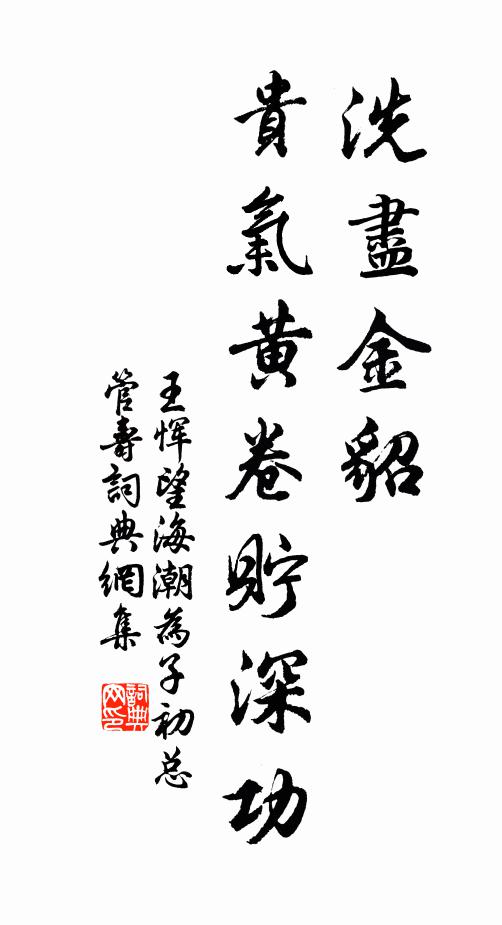 洗盡金貂
貴氣黃卷貯深功
王惲望海潮為子初总
管壽詞典網集
詞典
网印